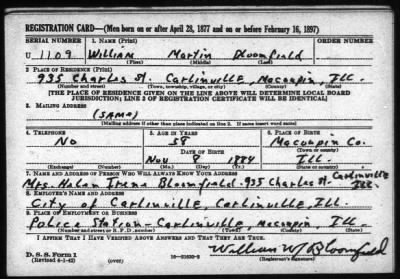 REGISTRATION CARD—(Men born on or after April 28, 1877 and on or before February 16, 1897)
SERIAL NUMBER 1. NAME (Print) ORDER NUMBER
U 1109 William Martin Bloomfield
(First) (Middle) (Last)
2. PLACE OF RESIDENCE (Print)
935 Charles St. Carlinville, Macoupin, Ill.
(Number and street) (Town, township, village, or city) (County) (State)
[THE PLACE OF RESIDENCE GIVEN ON THE LINE ABOVE WILL DETERMINE LOCAL BOARD
JURISDICTION; LINE 2 OF REGISTRATION CERTIFICATE WILL BE IDENTICAL]
3. MAILING ADDRESS
(SAME)
[Mailing address if other than place indicated on line 2. If same insert word same]
4. TELEPHONE 5. AGE IN YEARS 6. PLACE OF BIRTH
No 58 Macoupin Co.
DATE OF BIRTH (Town or county)
Nov 8 1884 Ill.
(Exchange) (Number) (Mo.) (Day) (Yr.) (State or country)
7. NAME AND ADDRESS OF PERSON WHO WILL ALWAYS KNOW YOUR ADDRESS Carlinville
Mrs. Helen Irene Bloomfield - 935 Charles St. Ill.
8. EMPLOYER'S NAME AND ADDRESS
City of Carlinville, Carlinville, Ill.
9. PLACE OF EMPLOYMENT OR BUSINESS
Police Station - Carlinville, Macoupin, Ill.
(Number and street or R. F. D. number) (Town) (County) (State)
I AFFIRM THAT I HAVE VERIFIED ABOVE ANSWERS AND THAT THEY ARE TRUE.
William M Bloomfield
D. S. S. Form 1 (Registrant's signature)
(Revised 4-1-42) (over) 16-21630-2